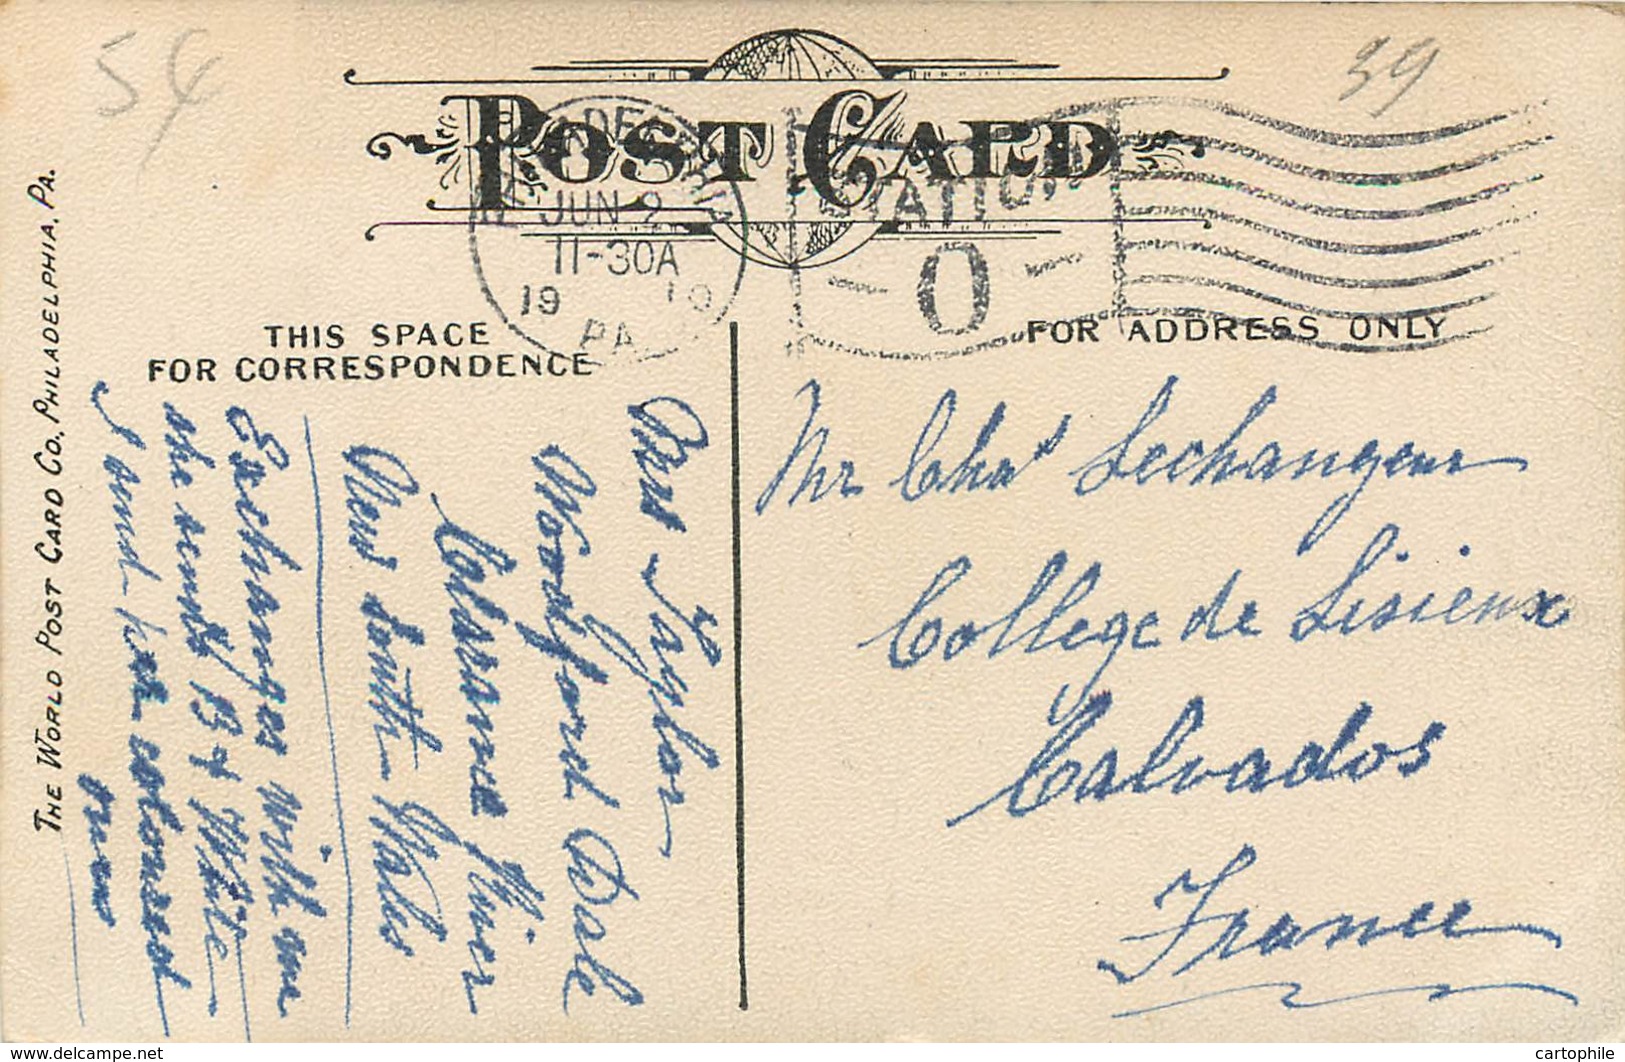 54
39
POST CARD
PHILADELPHIA
JUN 2
11-30A
19 10
PA.
STATION
O
THIS SPACE
FOR CORRESPONDENCE
FOR ADDRESS ONLY
THE WORLD POST CARD CO., PHILADELPHIA, PA.
Mrs Taylor
Woodford Dale
Clarence River
New South Wales
Exchanges with me
she sends B & White
I send her coloured
ones
Mr Chas Lechangeur
College de Lisieux
Calvados
France
www.delcampe.net
cartophile